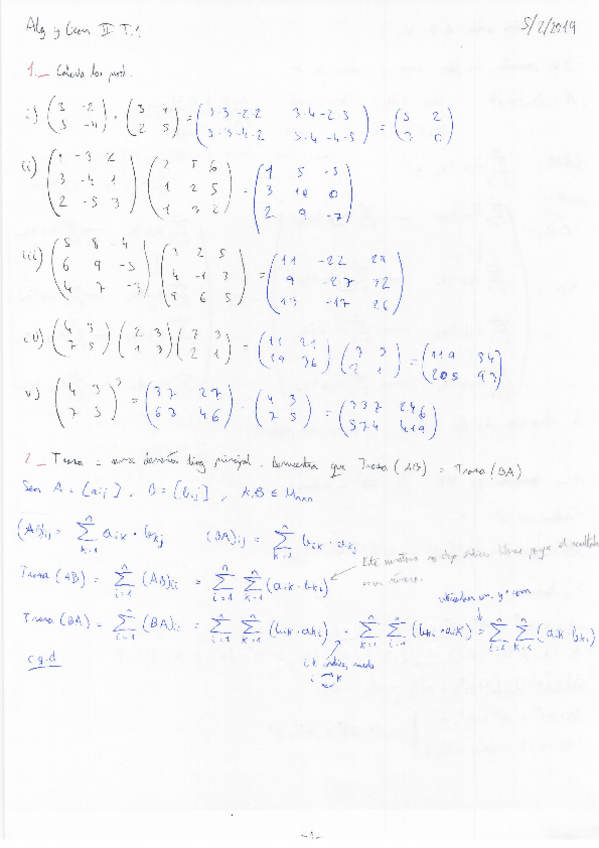 Alg y Geom II T.1 5/2/2019
1._ Calcula los prod.
i) (3 -2; 5 -4) · (3 4; 2 5) = (3·3-2·2 3·4-2·5; 5·3-4·2 5·4-4·5) = (5 2; 7 0)
ii) ( -3 2; 3 -4 1; 2 -5 3) (2 5 6; 1 2 5; 1 3 2) = (1 5 -5; 3 10 0; 2 9 -7)
iii) (5 8 -4; 6 9 -5; 4 7 -3) (3 2 5; 4 -1 3; 9 6 5) = (11 -22 29; 9 -27 32; 13 -17 26)
iv) (4 3; 7 5) (2 3; 1 3) ( 3; 2 1) = (11 21; 19 36) ( 3; 2 1) = (119 54; 205 93)
v) (4 3; 7 5)³ = (37 27; 63 46) · (4 3; 7 5) = (337 246; 574 419)
2_ Traza = suma elementos diag principal. Demuestra que Traza (AB) = Traza (BA)
Sean A = [aij], B = [bij], A,B ∈ Mnxn
(AB)ij = Σ(k=1, n) aik · bkj (BA)ij = Σ(k=1, n) bik · akj
Traza (AB) = Σ(i=1, n) (AB)ii = Σ(i=1, n) Σ(k=1, n) (aik · bki)
Este no índices libres el resultado
un número.
Traza (BA) = Σ(i=1, n) (BA)ii = Σ(i=1, n) Σ(k=1, n) (bik · aki) = Σ(k=1, n) Σ(i=1, n) (bki · aik) = Σ(i=1, n) Σ(k=1, n) (aik bki)
i k índices mudos
i ⇄ k
c.q.d
-1-